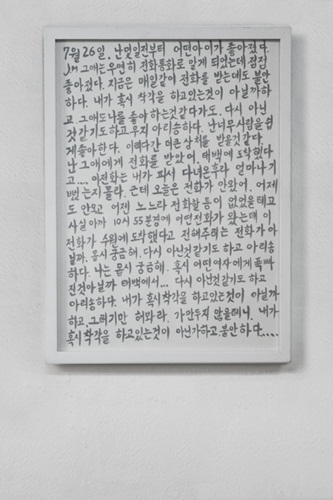 7월 26일. 난 몇일전부터 어떤아이가 좋아졌다.
JM 그애는 우연히 전화통화로 알게 되었는데 점점
좋아졌다. 지금은 매일같이 전화를 받는데도 불안
하다. 내가 혹시 착각을 하고있는것이 아닐까하
고 그애도 나를 좋아 하는것 같다가도. 다시 아닌
것같기도하고 무지 아리송하다. 난너무 사람을 쉽
게좋아한다. 이래다간 매번 상처를 받을것같다
난 그애에게 전화를 받았어. 태백에 도착했다
고.... 이전화는 내가 피서 다녀온후라 얼마나 기
뻤는지 몰라. 근데 오늘은 전화가 안왔어. 어제
도 안오고 어젠 노느라 전화할틈이 없었을테고
사실 아까 10시 55분경에 어떤전화가 왔는데 이
전화가 수원에 도착했다고 전해주려는 전화가 아
닐까. 몹시 궁금해. 다시 아닌것같기도 하고 아리송
하다. 나는 몹시 궁금해. 혹시 어떤여자에게 폭빠
진것아닐까 태백에서... 다시 아닌것같기도 하고
아리송하다. 내가 혹시 착각을 하고있는것이 아닐까
하고. 그러기만 해봐라. 가만두지 않을테니. 내가
혹시 착각을 하고있는것이 아닌가하고 불안하다....